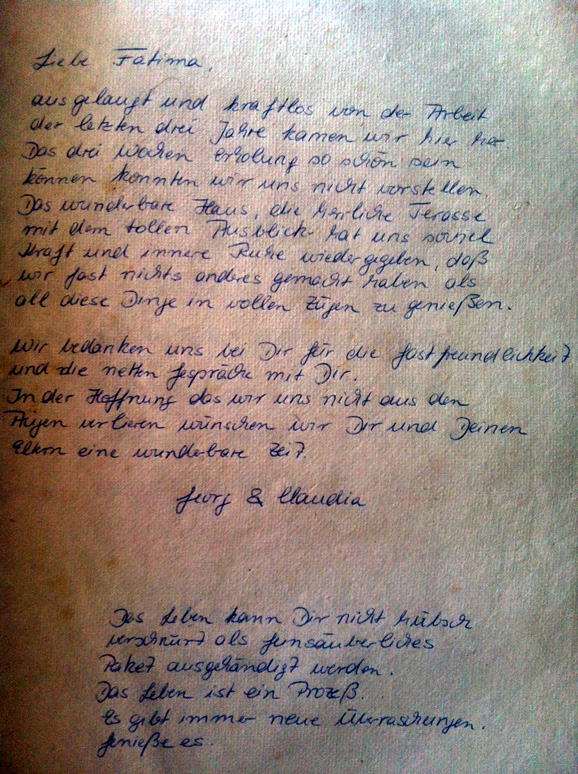 Liebe Fatima,
ausgelaugt und kraftlos von der Arbeit
der letzten drei Jahre kamen wir hier her.
Das drei Wochen erholung so schön sein
können konnten wir uns nicht vorstellen.
Das wunderbare Haus, die herrliche Terasse
mit dem tollen Ausblick hat uns soviel
Kraft und innere Ruhe wiedergegeben, daß
wir fast nichts anderes gemacht haben als
all diese Dinge in vollen Zügen zu genießen.
Wir bedanken uns bei Dir für die Gastfreundlichkeit
und die netten Gespräche mit Dir.
In der Hoffnung das wir uns nicht aus den
Augen verlieren wünschen wir Dir und Deinen
Eltern eine wunderbare Zeit.
Georg & Claudia
Das Leben kann Dir nicht hübsch
verschnürt als feinsäuberliches
Paket ausgehändigt werden.
Das Leben ist ein Prozeß.
Es gibt immer neue Überraschungen.
Genieße es.